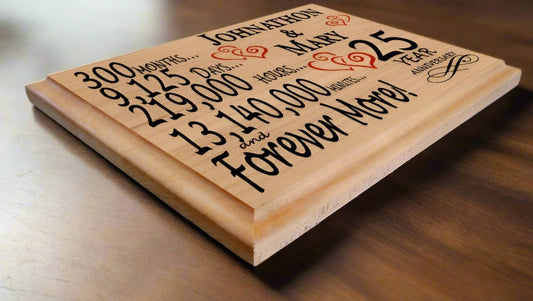 JOHNATHON
&
MARY
300 MONTHS...
9,125 DAYS...
219,000 HOURS...
13,140,000 MINUTES...
and
Forever More!
25
YEAR
ANNIVERSARY